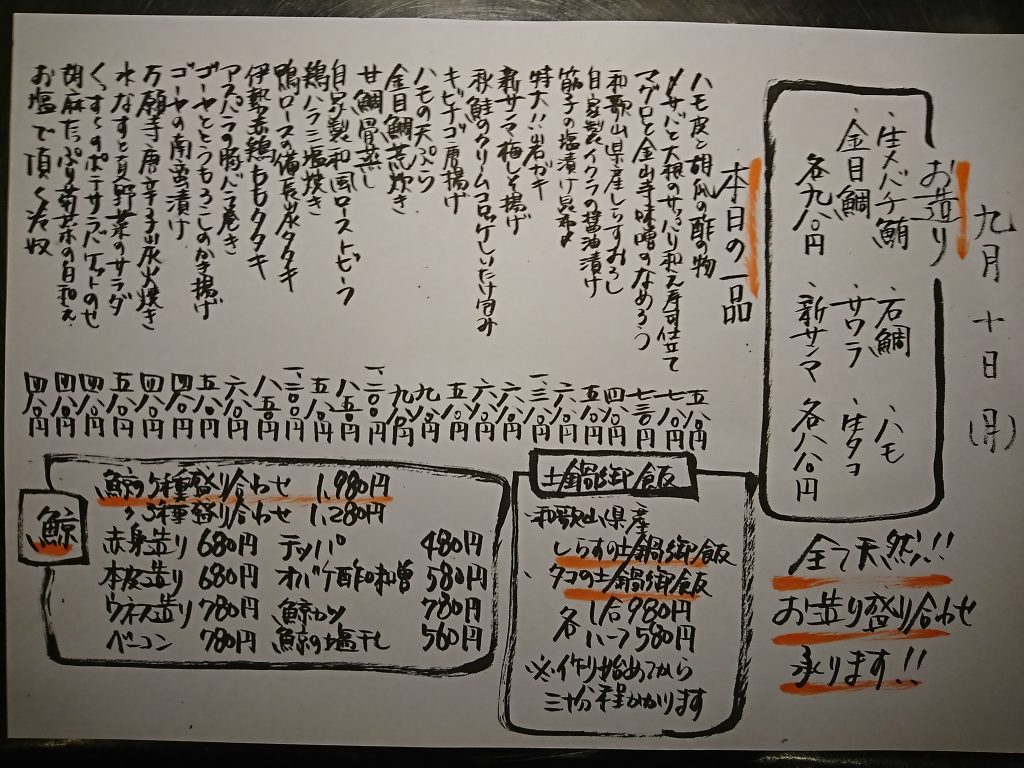 九月十日(月)
お造り
・生メバチ鮪 ・石鯛 ・ハモ
・金目鯛 ・サワラ ・生タコ
各九八〇円 ・新サンマ 各八八〇円
全て天然!!
お造り盛り合わせ
承ります!!
本日の一品
ハモ皮と胡瓜の酢の物 五八〇円
〆サバと大根のサッパリ和え寿司仕立て 七八〇円
マグロと金山寺味噌のなめろう 七三〇円
和歌山県産しらすおろし 四八〇円
自家製イクラの醤油漬け 五八〇円
筋子の塩漬け昆布〆 六八〇円
特大!!岩ガキ 一、三八〇円
新サンマ梅しそ揚げ 六八〇円
秋鮭のクリームコロッケしいたけ包み 六八〇円
キビナゴ唐揚げ 五八〇円
ハモの天ぷら 九八〇円
金目鯛荒炊き 九八〇円
甘鯛骨蒸し 一、二〇〇円
自家製和風ローストビーフ 八五〇円
鶏ハラミ塩焼き 五八〇円
鴨ロースの備長炭タタキ 一、三〇〇円
伊勢赤鶏ももタタキ 八五〇円
アスパラの豚バラ巻き 六八〇円
ゴーヤととうもろこしのかき揚げ 五八〇円
ゴーヤの南蛮漬け 四八〇円
万願寺唐辛子炭火焼き 四八〇円
水なすと夏野菜のサラダ 五八〇円
くんすーのポテサラバケットのせ 四八〇円
胡麻たっぷり菊菜の白和え 四八〇円
お塩で頂く冷奴 四八〇円
土鍋御飯
・和歌山県産
しらすの土鍋御飯
・タコの土鍋御飯
各 1合980円
ハーフ580円
※作り始めてから
三十分程かかります
鯨
鯨5種盛り合わせ 1,980円
〃3種盛り合わせ 1,280円
赤身造り 680円 テッパ 480円
本皮造り 680円 オバケ酢味噌 580円
ウネス造り 780円 鯨カツ 780円
ベーコン 780円 鯨の塩干し 560円